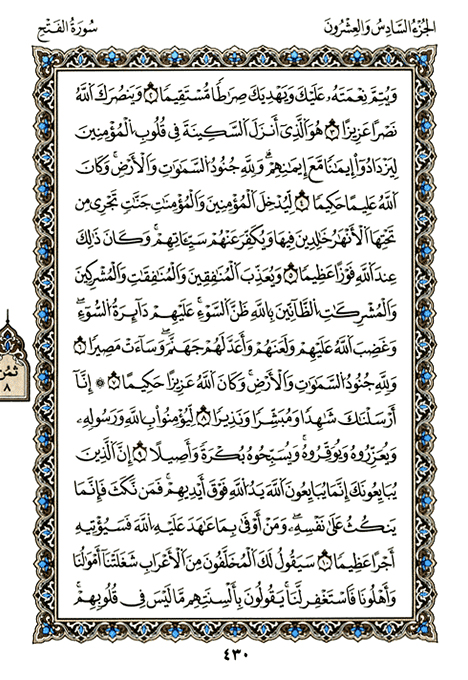 الجُزْءُ السَّادِسُ وَالعِشْرُونَ
سُورَةُ الفَتْحِ
وَيُتِمَّ نِعْمَتَهُۥ عَلَيْكَ وَيَهْدِيَكَ صِرَٰطٗا مُّسْتَقِيمٗا ٢ وَيَنصُرَكَ اَ۬للَّهُ
نَصْرًا عَزِيزًا ٣ هُوَ اَ۬لَّذِيٓ أَنزَلَ اَ۬لسَّكِينَةَ فِي قُلُوبِ اِ۬لْمُؤْمِنِينَ
لِيَزْدَادُوٓاْ إِيمَٰنٗا مَّعَ إِيمَٰنِهِمْۗ وَلِلَّهِ جُنُودُ اُ۬لسَّمَٰوَٰتِ وَالْأَرْضِۚ وَكَانَ
اَ۬للَّهُ عَلِيمًا حَكِيمٗا ٤ لِّيُدْخِلَ اَ۬لْمُؤْمِنِينَ وَالْمُؤْمِنَٰتِ جَنَّٰتٖ تَجْرِي مِن
تَحْتِهَا اَ۬لْأَنْهَٰرُ خَٰلِدِينَ فِيهَا وَيُكَفِّرَ عَنْهُمْ سَيِّـَٔاتِهِمْۚ وَكَانَ ذَٰلِكَ
عِندَ اَ۬للَّهِ فَوْزًا عَظِيمٗا ٥ وَيُعَذِّبَ اَ۬لْمُنَٰفِقِينَ وَالْمُنَٰفِقَٰتِ وَالْمُشْرِكِينَ
وَالْمُشْرِكَٰتِ اِ۬لظَّآنِّينَ بِاللَّهِ ظَنَّ اَ۬لسَّوْءِۚ عَلَيْهِمْ دَآئِرَةُ اُ۬لسُّوٓءِۖ
وَغَضِبَ اَ۬للَّهُ عَلَيْهِمْ وَلَعَنَهُمْ وَأَعَدَّ لَهُمْ جَهَنَّمَۖ وَسَآءَتْ مَصِيرٗا ٦
وَلِلَّهِ جُنُودُ اُ۬لسَّمَٰوَٰتِ وَالْأَرْضِۚ وَكَانَ اَ۬للَّهُ عَزِيزًا حَكِيمًا ٧ ۞ إِنَّآ
أَرْسَلْنَٰكَ شَٰهِدٗا وَمُبَشِّرٗا وَنَذِيرٗا ٨ لِّيُؤْمِنُواْ بِاللَّهِ وَرَسُولِهِۦ
وَيُعَزِّرُوهُ وَيُوَقِّرُوهُۚ وَيُسَبِّحُوهُ بُكْرَةٗ وَأَصِيلًا ٩ إِنَّ اَ۬لَّذِينَ
يُبَايِعُونَكَ إِنَّمَا يُبَايِعُونَ اَ۬للَّهَ يَدُ اُ۬للَّهِ فَوْقَ أَيْدِيهِمْۚ فَمَن نَّكَثَ فَإِنَّمَا
يَنكُثُ عَلَىٰ نَفْسِهِۦۖ وَمَنْ أَوْفَىٰ بِمَا عَٰهَدَ عَلَيْهِ اِ۬للَّهَ فَسَيُؤْتِيهِ
أَجْرًا عَظِيمٗا ١٠ سَيَقُولُ لَكَ اَ۬لْمُخَلَّفُونَ مِنَ اَ۬لْأَعْرَابِ شَغَلَتْنَآ أَمْوَٰلُنَا
وَأَهْلُونَا فَاسْتَغْفِر لَّنَاۚ يَقُولُونَ بِأَلْسِنَتِهِم مَّا لَيْسَ فِي قُلُوبِهِمْۚ
ثُمُن
٨
٤٣٠